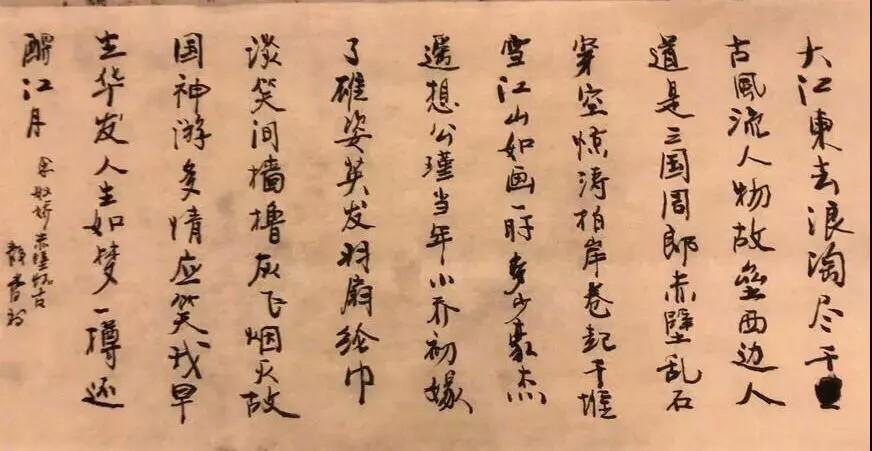 大江東去浪淘尽千
古風流人物故垒西边人
道是三国周郎赤壁乱石
穿空惊涛拍岸卷起千堆
雪江山如画一时多少豪杰
遥想公瑾当年小乔初嫁
了雄姿英发羽扇纶巾
淡笑间樯橹灰飞烟灭故
国神游多情应笑我早
生华发人生如梦一樽还
酹江月
念奴娇赤壁怀古